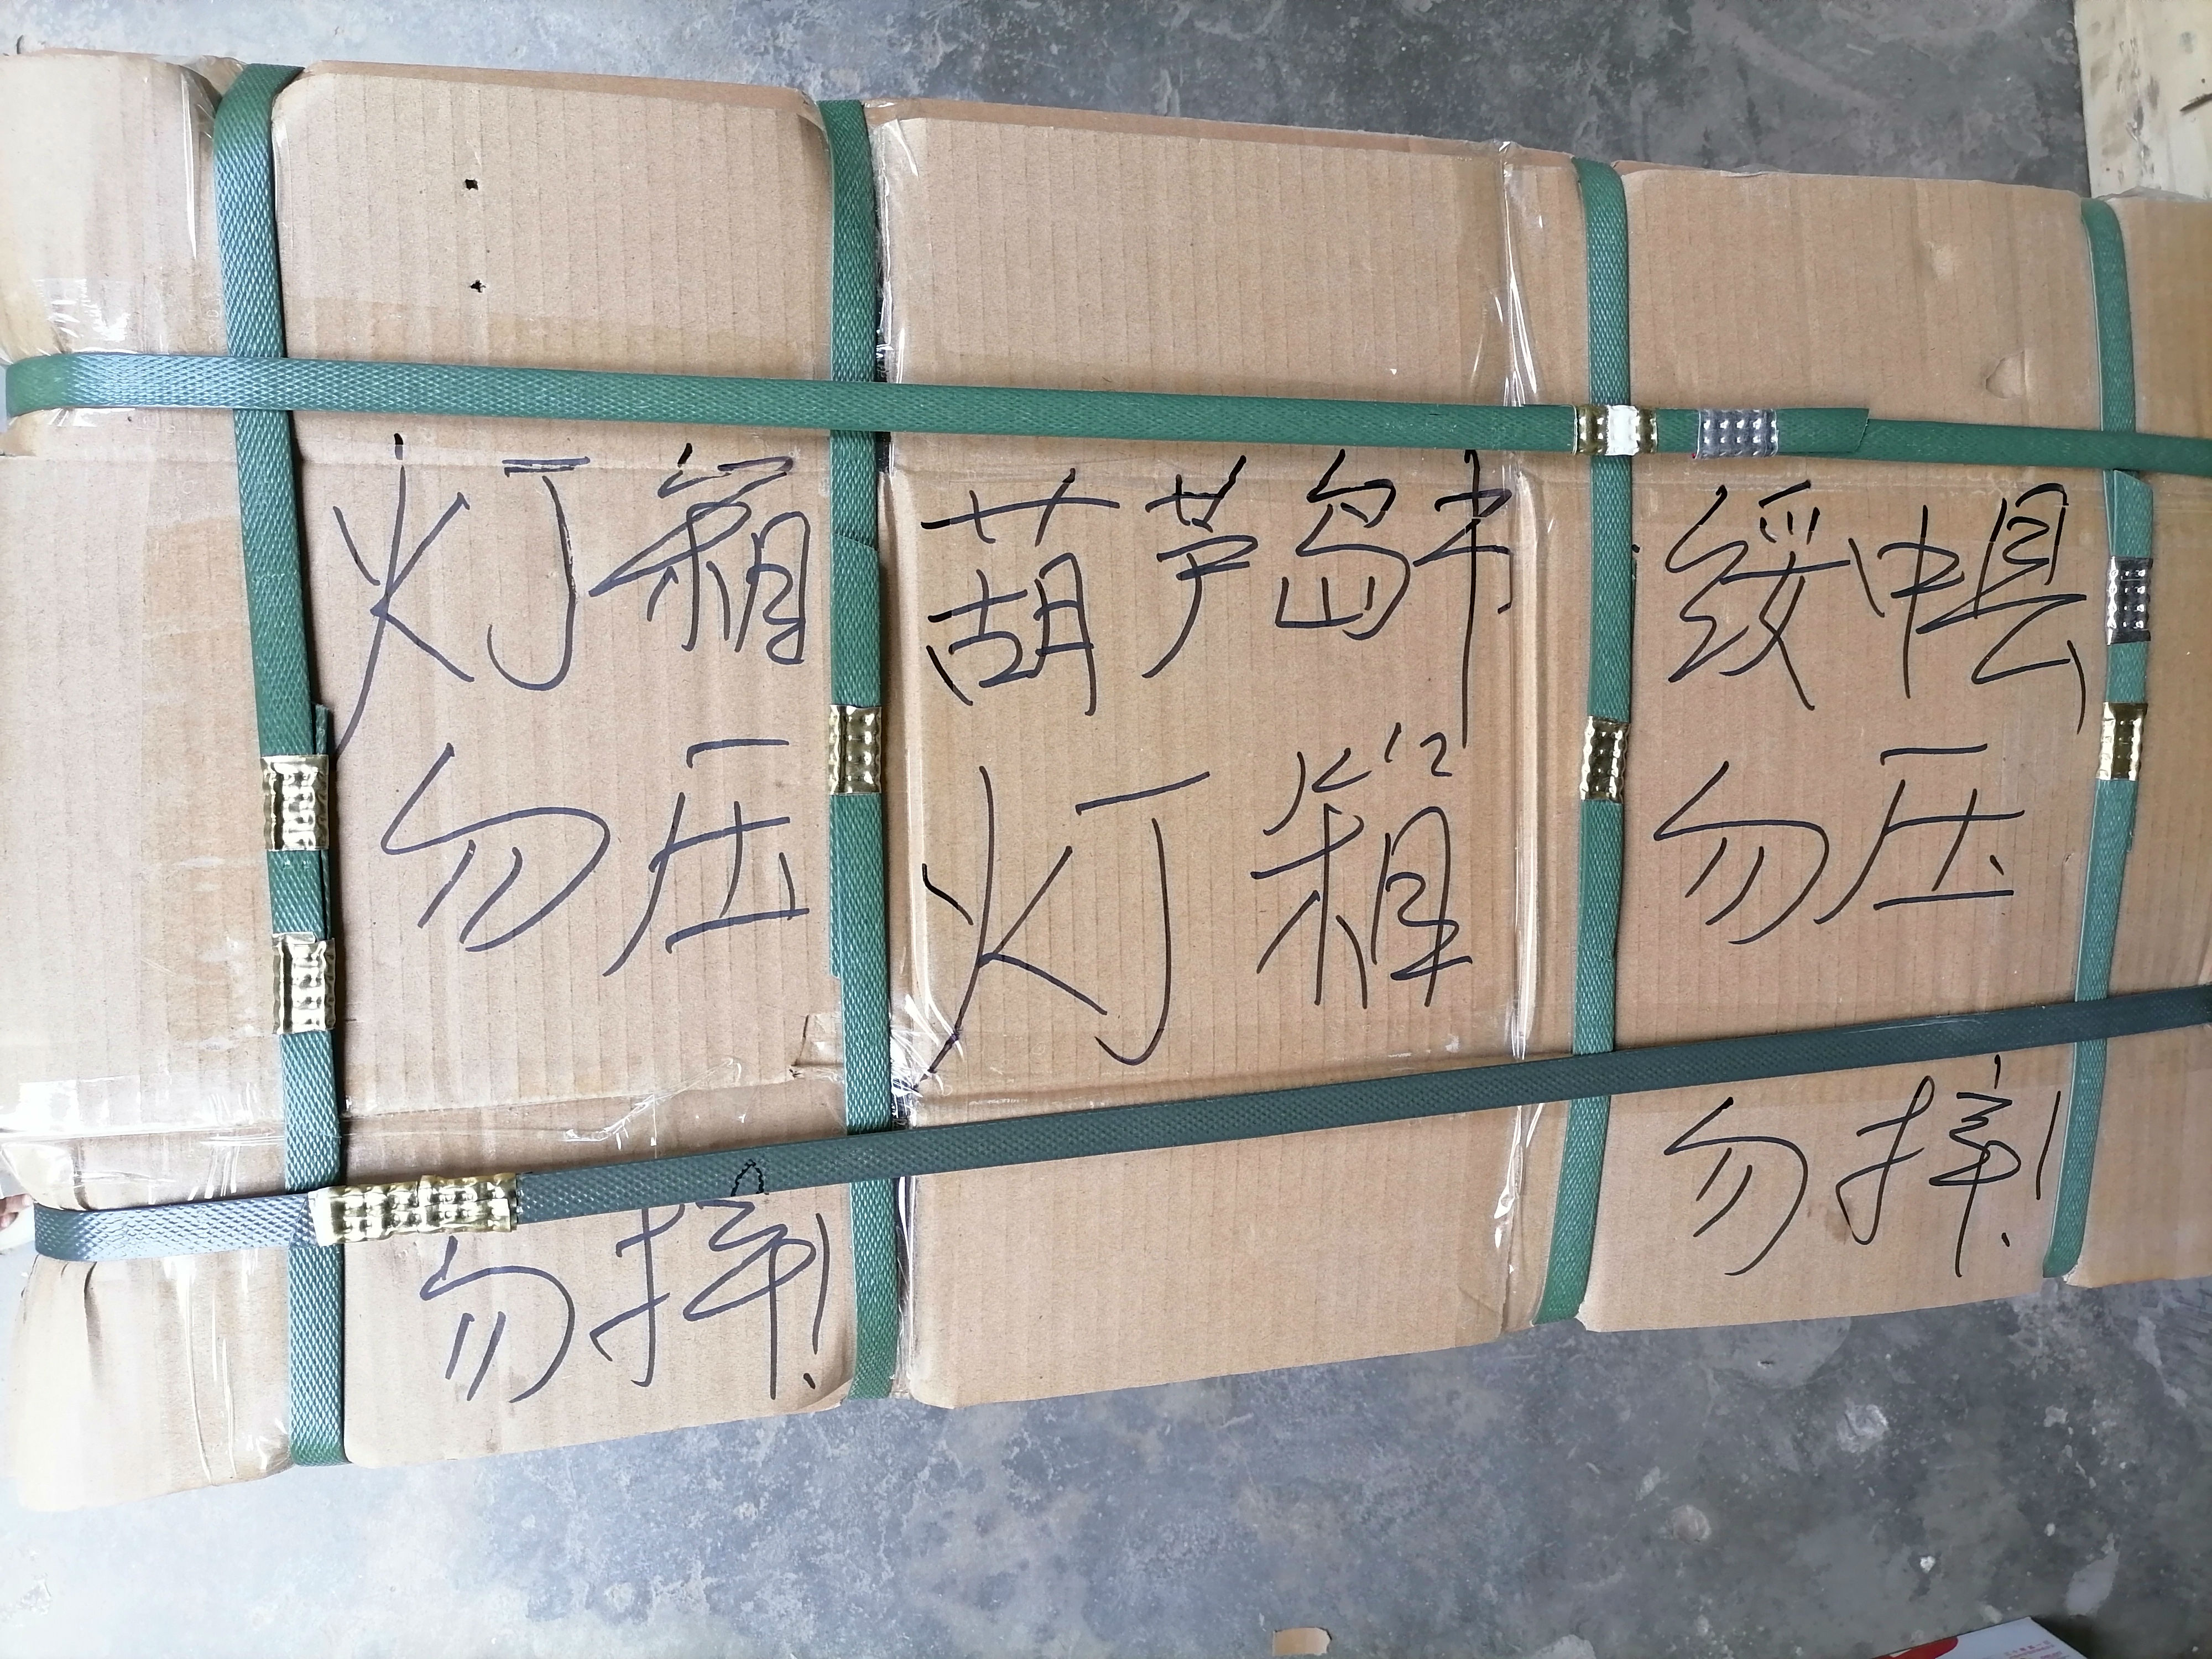 灯箱 葫芦岛市 绥中县
勿压 灯箱 勿压
勿摔! 勿摔!